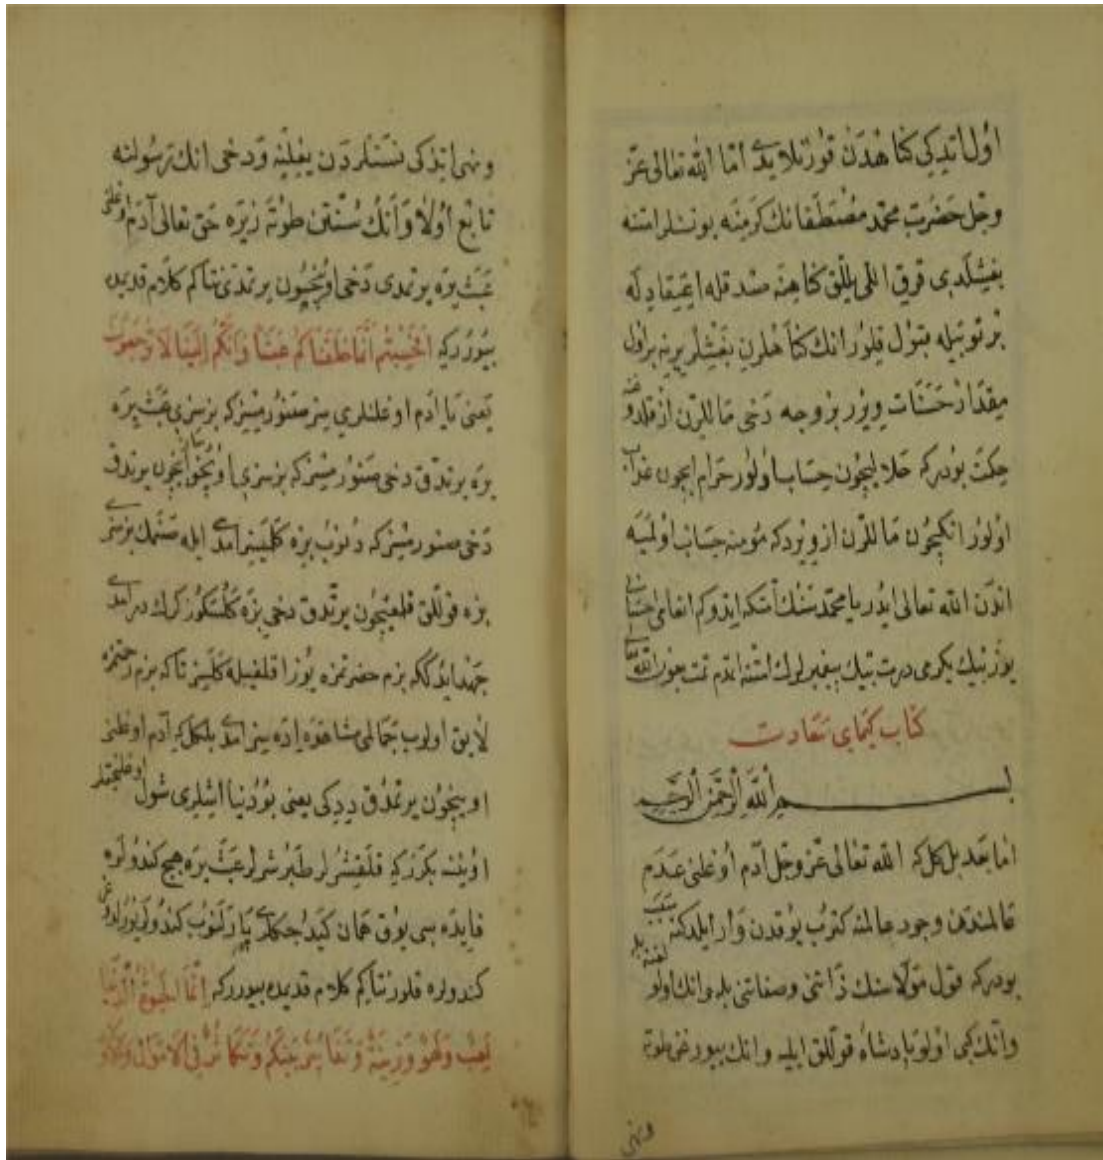 اول اتدكی كناهدن قورتلايدی اما الله تعالی عز
وجل حضرت محمد مصطفانك كرمنه بونشلر امتنه
بغشلدی قرق اللی ییللق كناهنه صدقله اعتقادله
بر توبیله قبول قلور انك كناهلرن بغشلر یرینه بر اول
مقدار حسنات ویرر بر وجه دخی ماللرن از قلدوغی
حكمت بودركه حلالیچون حساب اولور حرام ایچون عذاب
اولور انكیچون ماللرن از ویردكه مومنه حساب اولمیه
اندن الله تعالی ایدر یا محمد سنك امتكه ایدوكم انعامی احسانی
یوز بیك یكرمی درت بیك پیغمبرلرك امتنه اتدم تمت بعون الله تعالی
كتاب كیمیای سعادت
بسم الله الرحمن الرحیم
اما بعد بل كل كه الله تعالی عز وجل آدم اوغلنی عدم
عالمندن وجود عالمنه كترب یوقدن وار ایلدكنه سبب
بودركه قول مولاسنك ذاتنی وصفاتنی بله وانك اولو
وانك كبی اولو پادشاه قوللق ایلیه وانك بیوردغن طوته
ونهی
ونهی اتدكی نسنلردن یغلنه ودخی انك رسولنه
تابع اولا وانك سنتن طوته زیره حق تعالی آدم اوغلنی
عبث یره یرتمدی دخی اویچون یرتمدی نتاكم كلام قدیمده
بیورركه افحسبتم انما خلقناكم عبثا وانكم الینا لا ترجعون
یعنی یا ادم اوغلنلری سز صنورمیسز كه بز سزی عبث یره
یره یرتدق دخی صنورمیسز كه بز سزی اویچون یرتدق
دخی صنورمیسز كه دنوب بزه كلمیسز ایله صنمك بز سزی
بزه قوللق قلمغیچون یرتدق دخی بزه كلسكوز كرك در امدی
جهد ایدك كه بزم حضرتمزه یوز اقلغیله كلیسز تا كه بزم رحمتمزه
لایق اولوب جمالی مشاهده ایده سیز امدی بلكل كه آدم اوغلنی
اویچون یرتمدق ددكی یعنی بو دنیا ایشلری شول اوغلنجقلر
اویننه بكزركه قلقشرلر طپرشرلر عبث یره هیچ كندولره
فایده سی یوق همان كیدجكلری پارلنوب كندولری یورلدوغی
كندولره قلور نتاكم كلام قدیمده بیورركه انما الحیوة الدنیا
لعب ولهو وزینة وتفاخر بینكم وتكاثر فی الاموال والاولاد